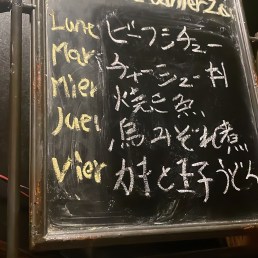 Lune ビーフシチュー
Mar チャーシュー丼
Mier 焼き魚
Juev 鳥みぞれ煮
Vier かき玉子うどん